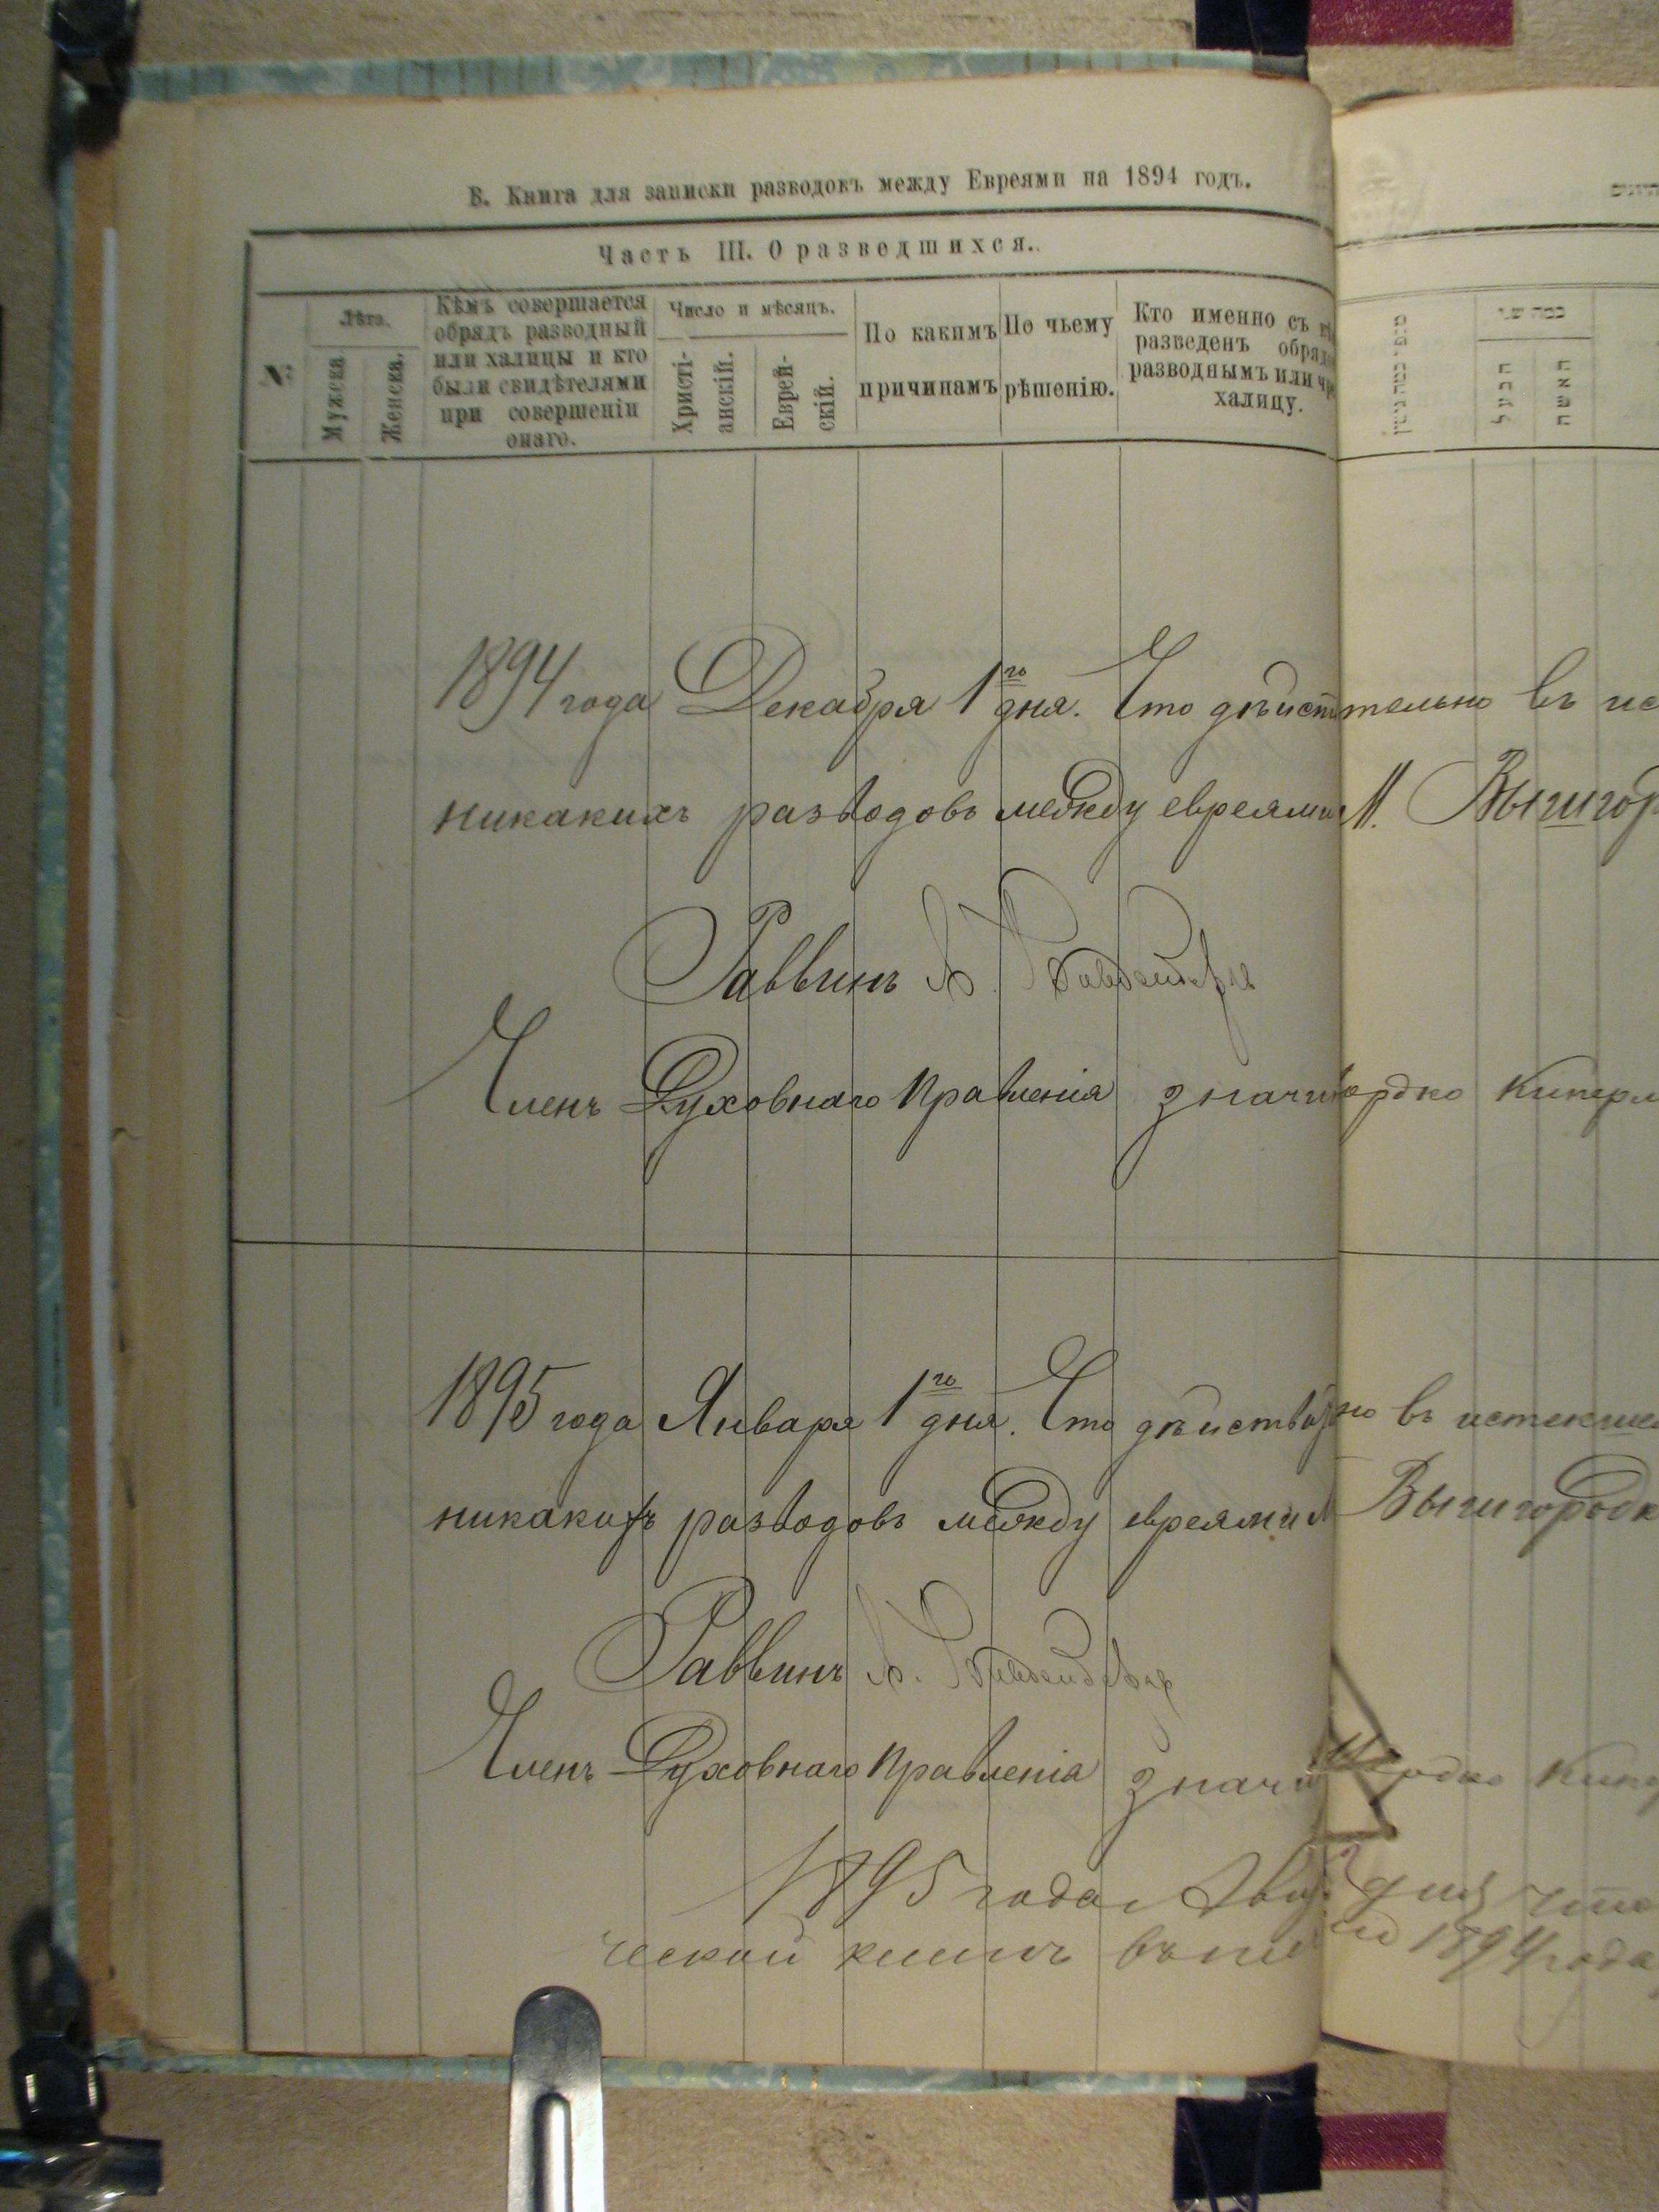 В. Книга для записки разводокъ между Евреями на 1894 годъ.
Часть III. О разведшихся.
№
Лѣта.
Мужска
Женска.
Кѣмъ совершается
обрядъ разводный
или халицы и кто
были свидѣтелями
при совершеніи
онаго.
Число и мѣсяцъ.
Христі-
анскій.
Еврей-
скій.
По какимъ
причинамъ
По чьему
рѣшенію.
Кто именно съ
разведенъ
разводнымъ или
халицу.
הבעל
האשה
1894 года Декабря 1го дня. Что дѣист тельно въ ис
никакихъ разводовъ между евреями М. Вышгор
Раввинъ
Членъ Духовнаго Правленія значи ордко Кипер
1895 года Января 1го дня. Что дѣиств но въ истекше
никакихъ разводовъ между евреями Вышгородк
Раввинъ
Членъ Духовнаго Правленія значи
1895 года дня что
ческой книгѣ 1894 года